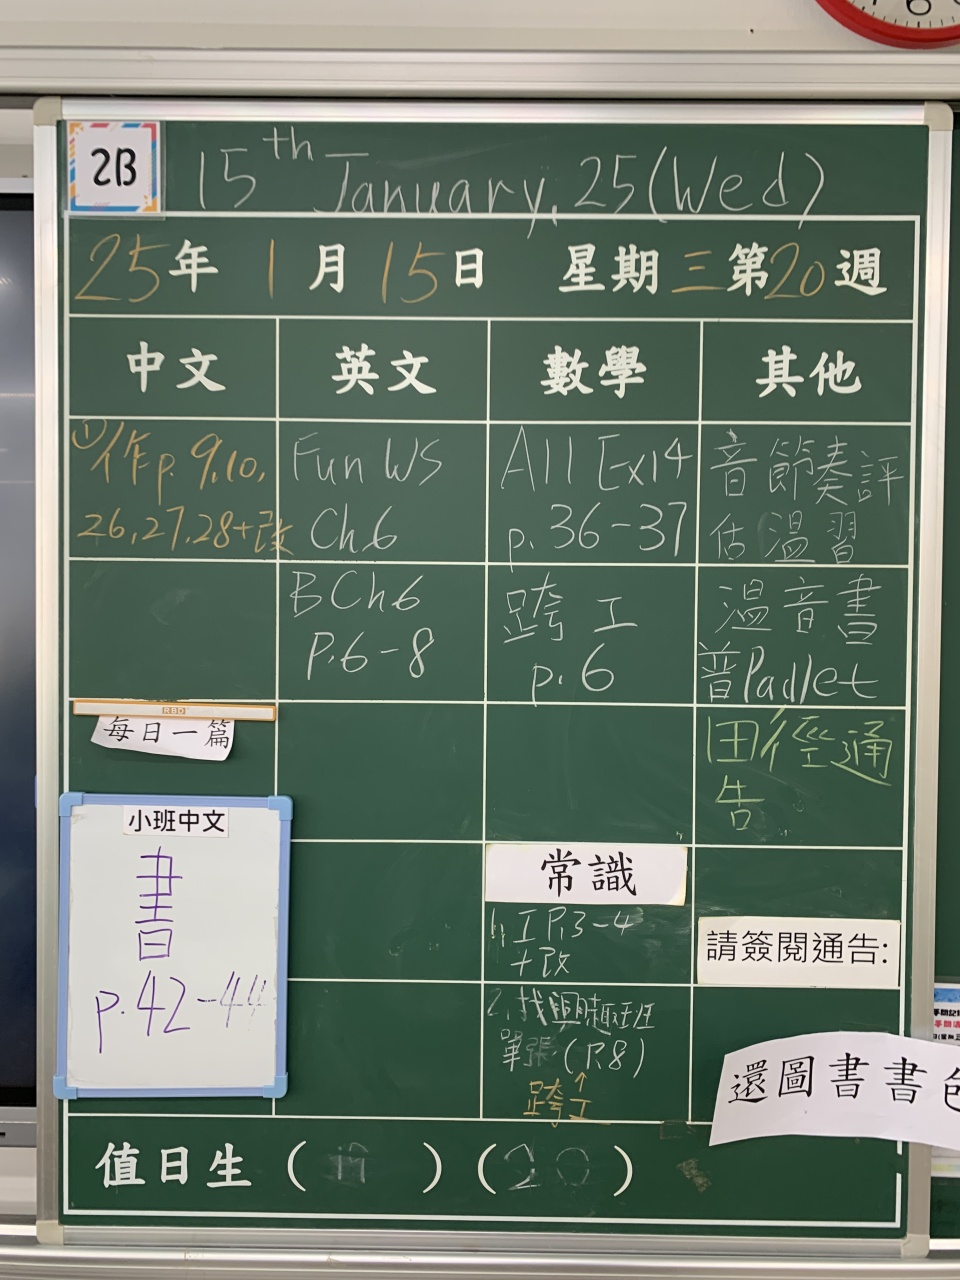 2B
15th January, 25(Wed)
25年 1月 15日 星期三第20週
中文 英文 數學 其他
①作p. 9,10,
26,27,28+改
Fun WS
Ch.6
All Ex14
p. 36-37
音節奏評
估溫習
B Ch6
P.6-8
跨工
p. 6
溫音書
普Padlet
每日一篇
田徑通
告
小班中文
書
p.42-44
常識
1. 工 P.3-4
+改
請簽閱通告:
2. 找興趣班
單張 (P.8)
↑
跨工
還圖書書
值日生 ( ) (20)